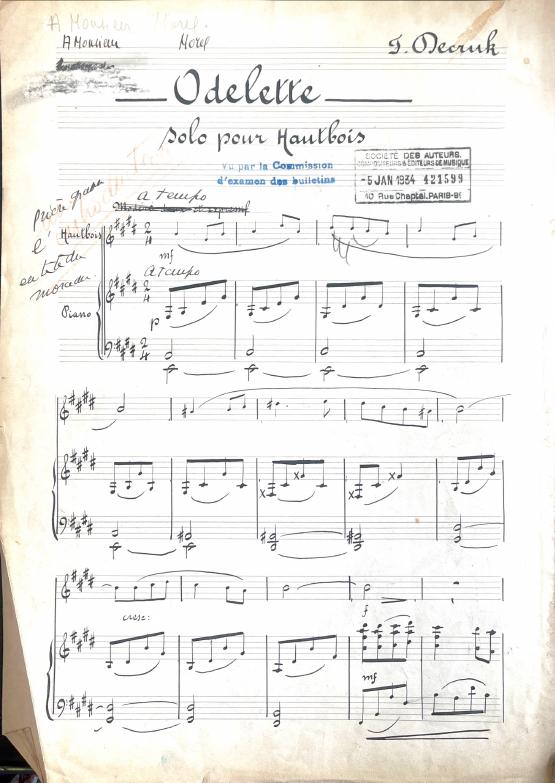 A Monsieur Morel.
A Monsieur Morel
F. Decruk
Odelette
Solo pour Hautbois
Vu par la Commission
d'examen des bulletins
SOCIÉTÉ DES AUTEURS,
COMPOSITEURS & ÉDITEURS DE MUSIQUE
-5 JAN 1934 421599
10 Rue Chaptal, PARIS-9e
a Tempo
Prière graver
l'
en tête du
morceau.
Hautbois
mf
a Tempo
Piano
p
cresc:
f
mf